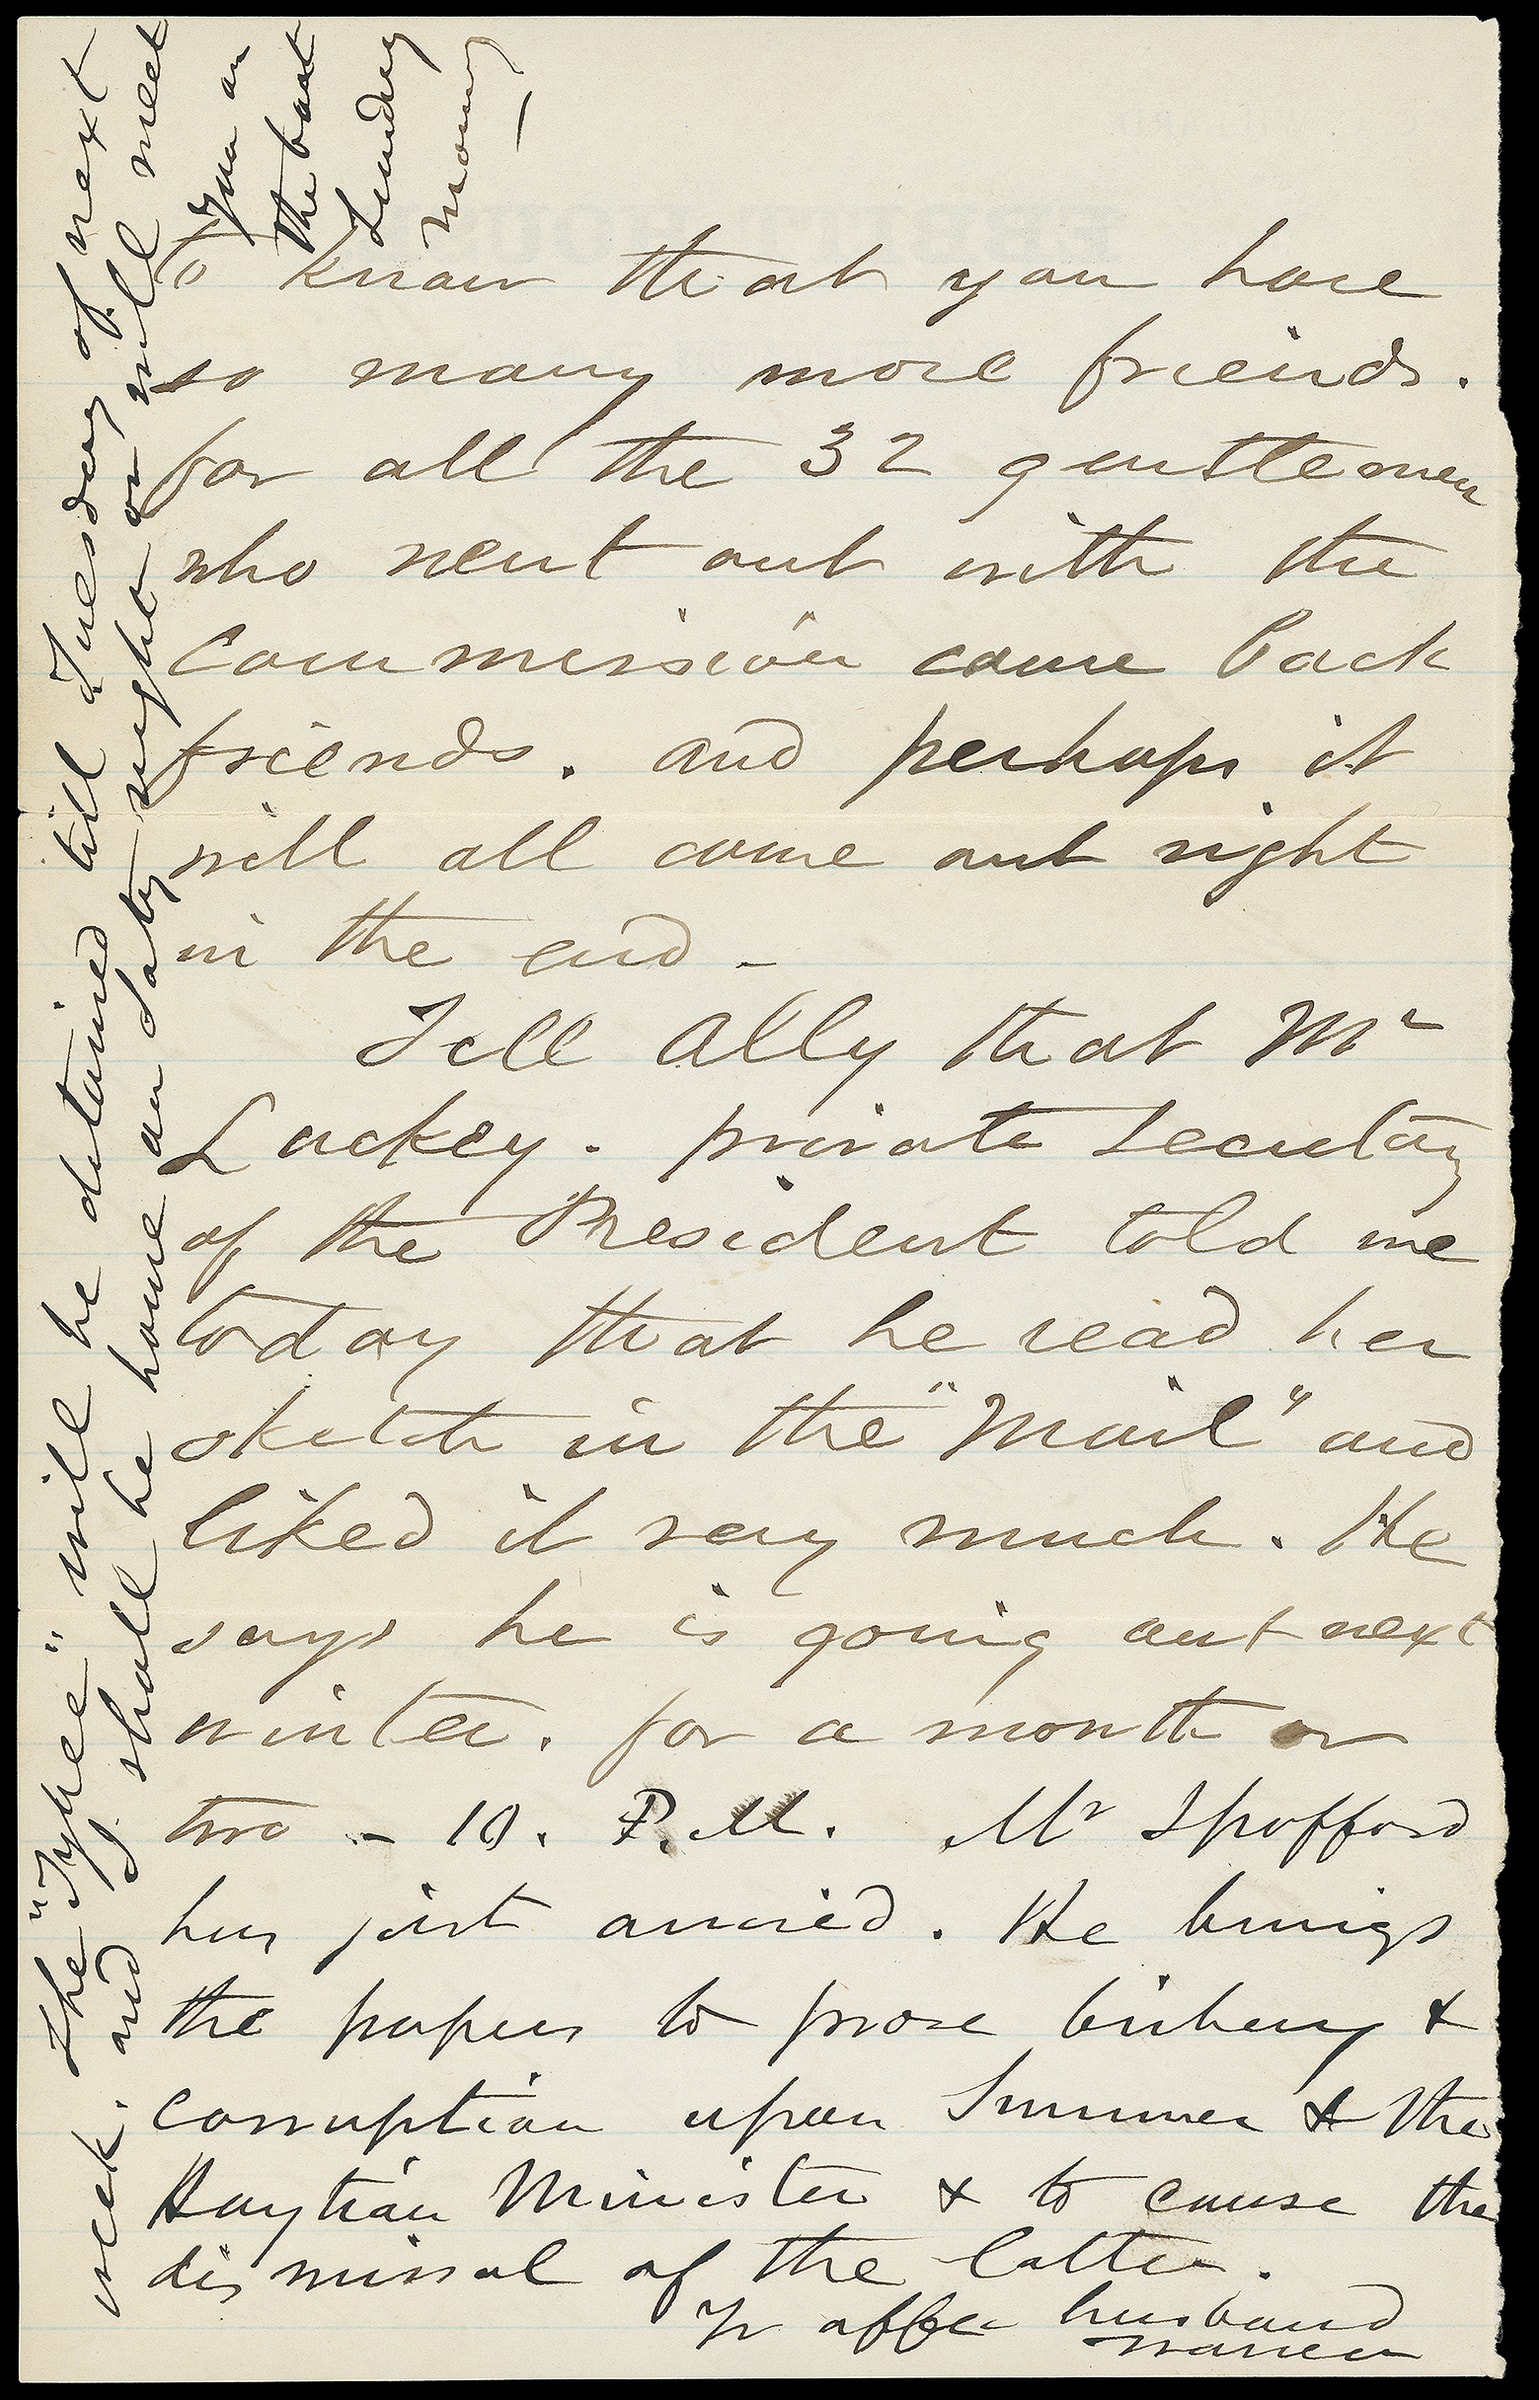 to know that you have
so many more friends.
for all the 32 gentlemen
who went out with the
Commission came back
friends. and perhaps it
will all come out right
in the end -
Tell Ally that Mr
Lackey. private Secretary
of the President told me
today that he read her
sketch in the "Mail" and
liked it very much. He
says he is going out next
winter. for a month or
two - 10. P.M. Mr Spofford
has just arrived. He brings
the papers to prove bribery &
corruption upon Sumner & the
Haytian Minister & to cause the
dismissal of the latter.
Yr affec husband
Warren
The "Tybee" will be detained till Tuesday of next
week. and I shall be home on Saty night or will meet
You on
the boat
Sunday
morning